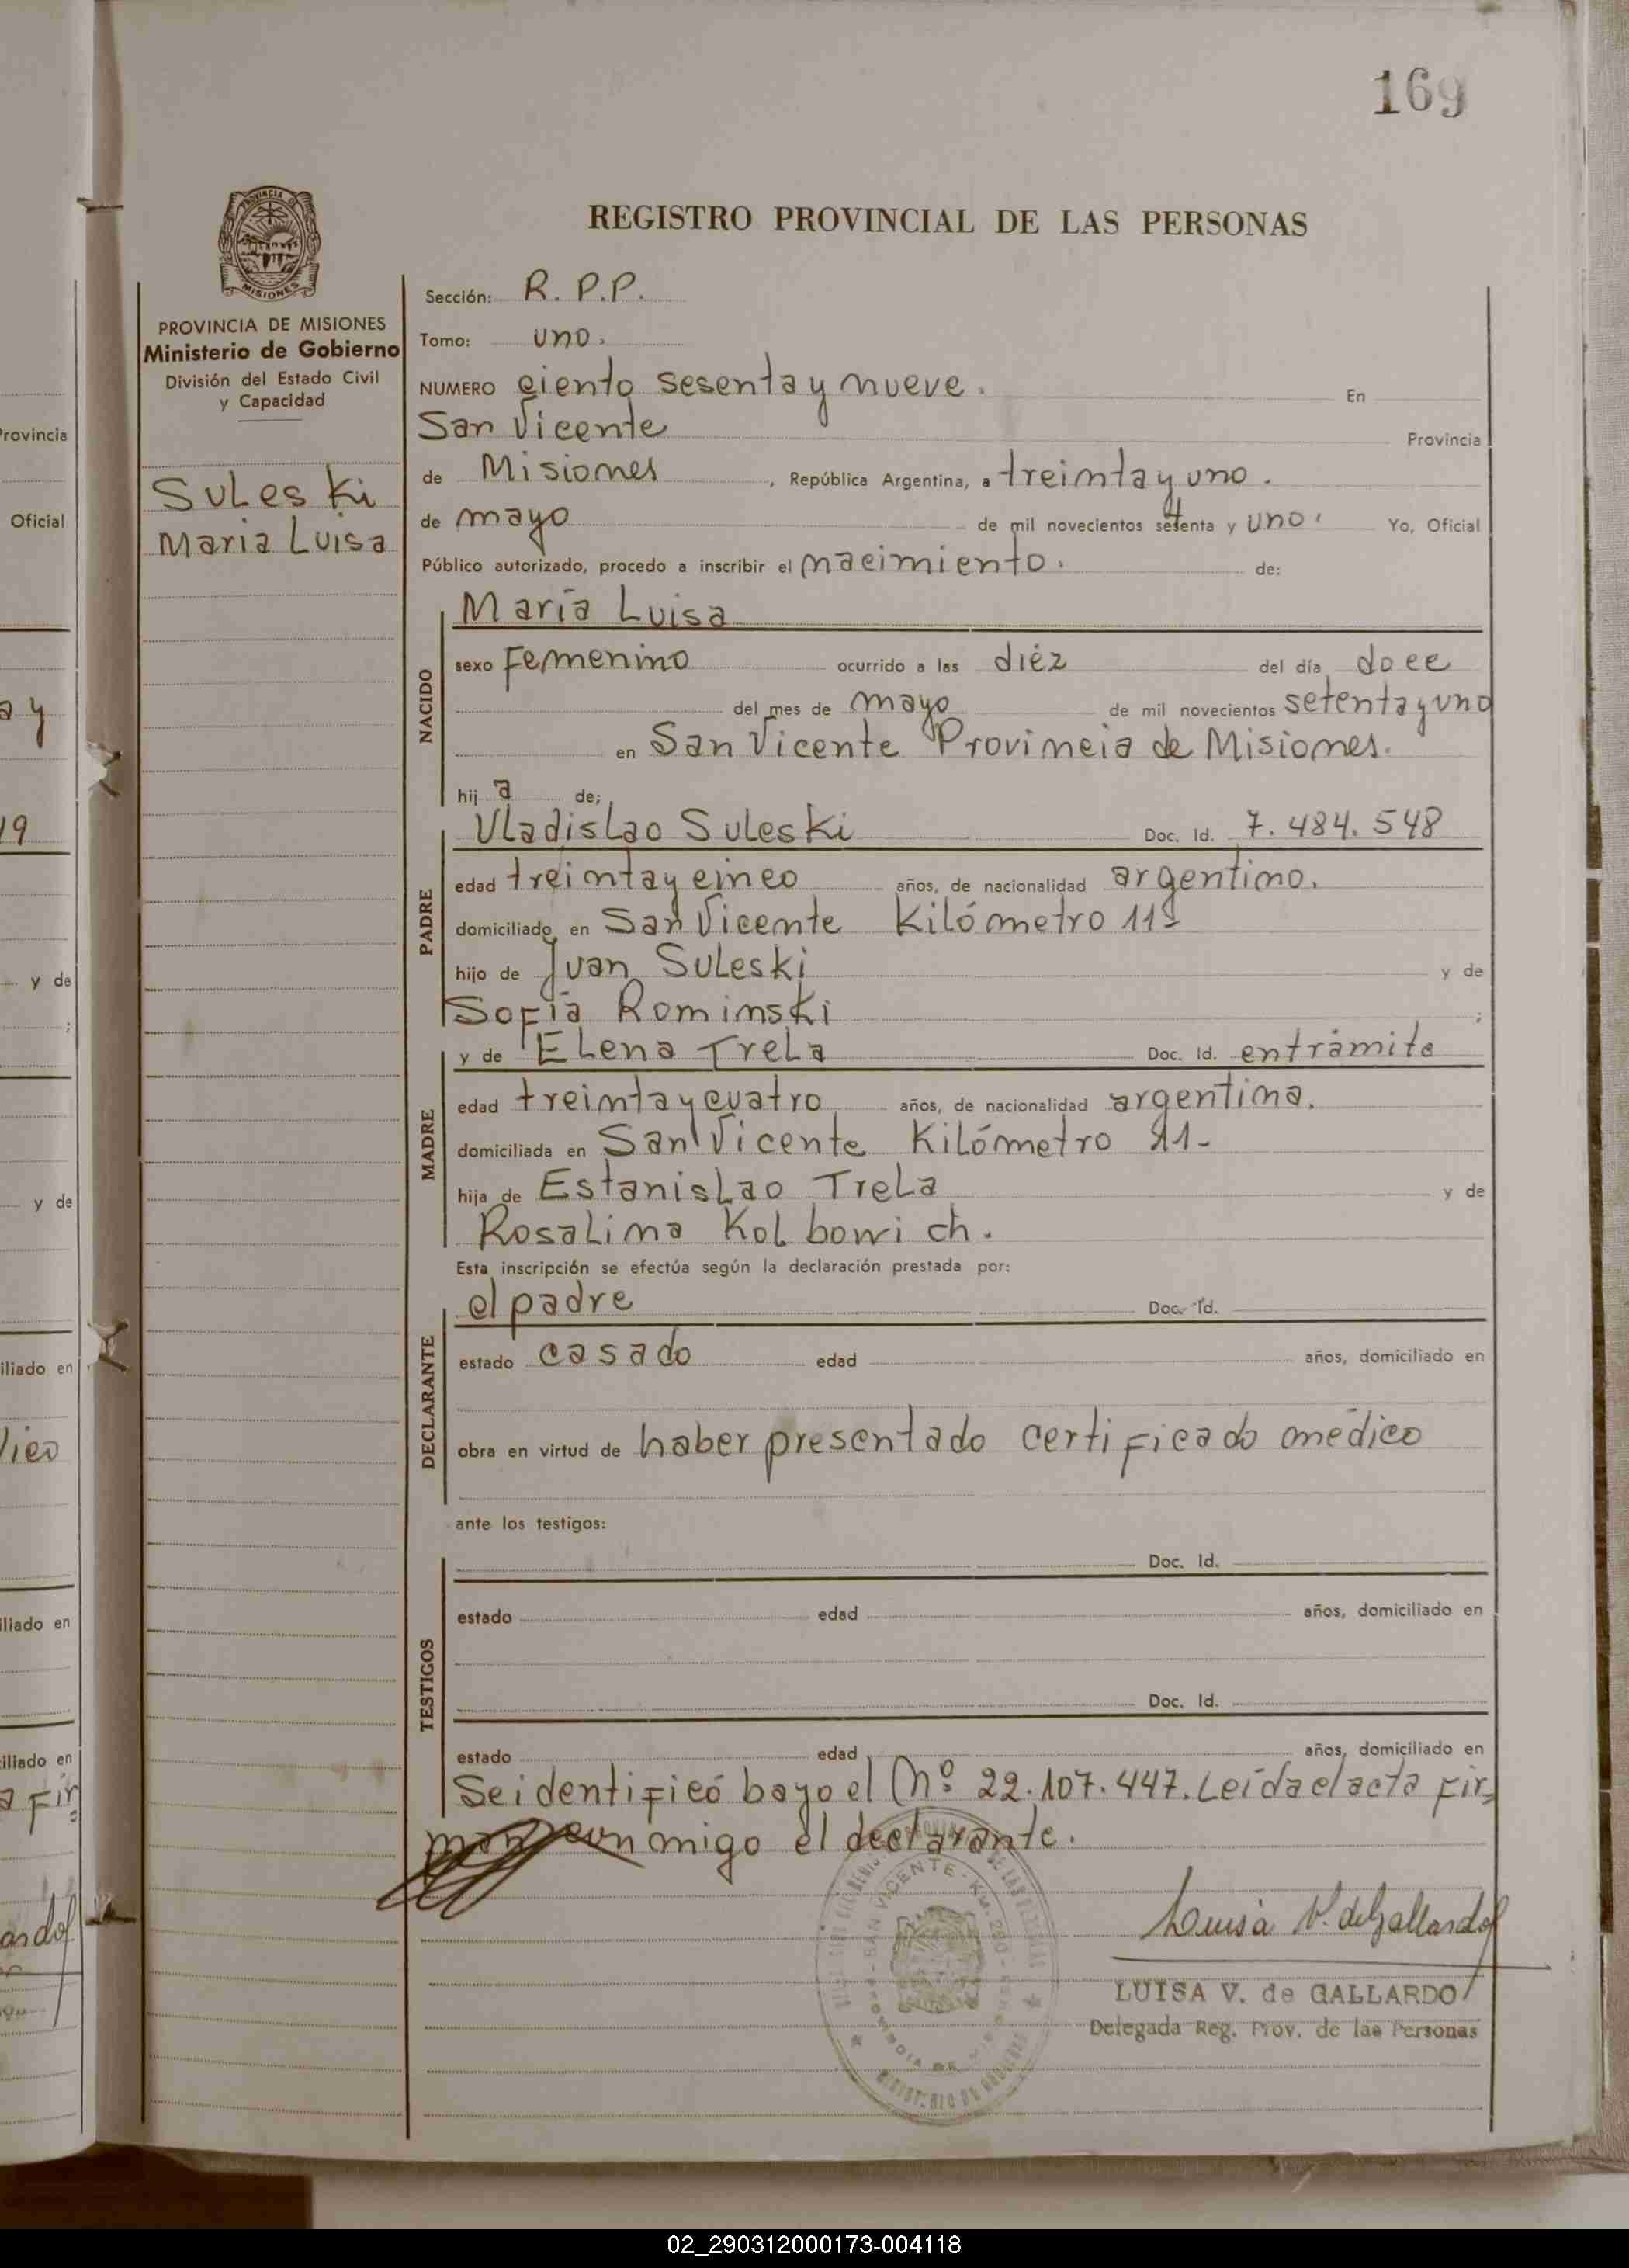 169
REGISTRO PROVINCIAL DE LAS PERSONAS
PROVINCIA DE MISIONES
Ministerio de Gobierno
División del Estado Civil
y Capacidad
Suleski
Maria Luisa
Sección: R. P. P.
Tomo: uno.
NUMERO ciento sesenta y nueve. En
San Vicente Provincia
de Misiones, República Argentina, a treinta y uno.
de mayo de mil novecientos setenta y uno. Yo, Oficial
Público autorizado, procedo a inscribir el nacimiento. de:
NACIDO
María Luisa
sexo Femenino ocurrido a las diéz del día doce
del mes de mayo de mil novecientos setenta y uno
en San Vicente Provincia de Misiones.
hij a de;
PADRE
Vladislao Suleski Doc. Id. 7.484.548
edad treinta y cinco años, de nacionalidad argentino.
domiciliado en San Vicente Kilómetro 11-
hijo de Juan Suleski y de
Sofía Rominski ;
MADRE
y de Elena Trela Doc. Id. entrámite
edad treinta y cuatro años, de nacionalidad argentina.
domiciliada en San Vicente Kilómetro 11-
hija de Estanislao Trela y de
Rosalina Kolbowich.
Esta inscripción se efectúa según la declaración prestada por:
DECLARANTE
el padre Doc. Id.
estado casado edad años, domiciliado en
obra en virtud de haber presentado certificado médico
ante los testigos:
TESTIGOS
Doc. Id.
estado edad años, domiciliado en
Doc. Id.
estado edad años, domiciliado en
Se identificó bayo el Nº 22.107.447. Leída el acta fir-
man conmigo el declarante.
Luisa V. de Gallardo
LUISA V. de GALLARDO
Delegada Reg. Prov. de las Personas
Provincia
Oficial
a y
19
y de
;
y de
iliado en
iliado en
iliado en
a fir
02_290312000173-004118